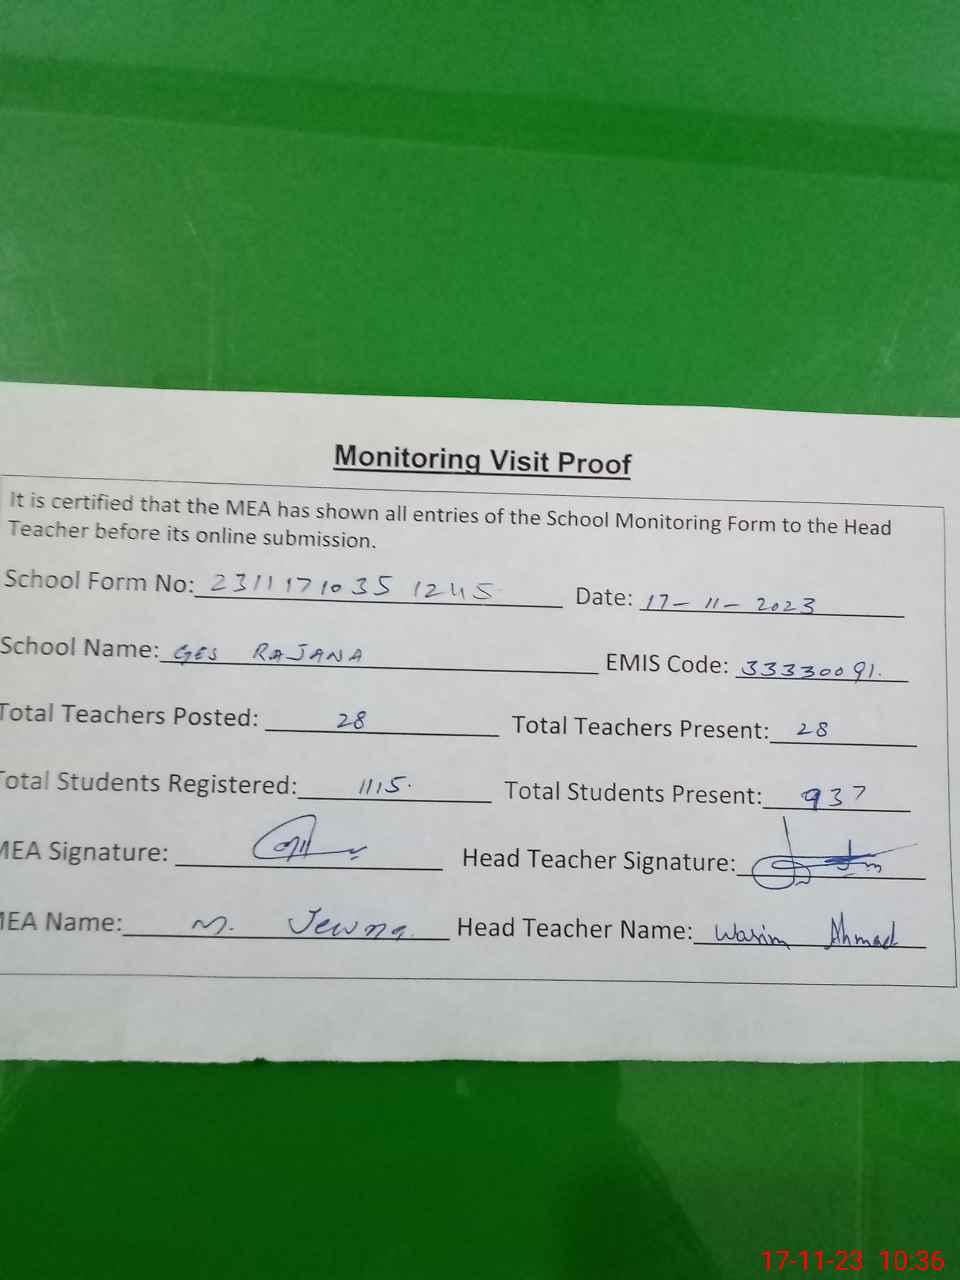 Monitoring Visit Proof
It is certified that the MEA has shown all entries of the School Monitoring Form to the Head
Teacher before its online submission.
School Form No: 2311171035 1245 Date: 17-11-2023
School Name: GES RAJANA EMIS Code: 33330091.
Total Teachers Posted: 28 Total Teachers Present: 28
Total Students Registered: 1115. Total Students Present: 937
MEA Signature: Head Teacher Signature:
MEA Name: M. Head Teacher Name: Wasim Ahmad
17-11-23 10:36